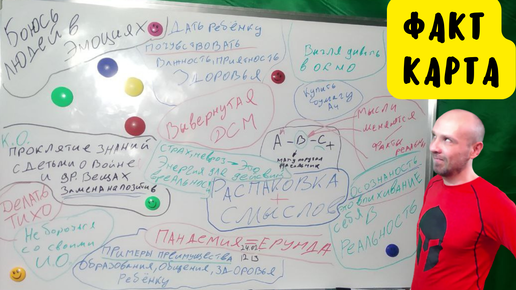 ФАКТ
КАРТА
Боюсь
людей в
Эмоциях
Дать ребёнку
почувствовать
Важность, Причасность
Здоровья
Выглядывать
в окно
Купить
бумагу
А4
Вывернутая
ДСМ
Мысли
меняются
Факты
А - В - С
К.О.
Проклятие знаний
с детьми о войне
и др. вещах
Замена на позитив
Страх, невроз → это
Энергия для действий
в реальности
Распаковка
+
смыслов
Осознанность
это впихивание
себя в
Реальность
Делать
тихо
Не бороться
со своими
И.О.
Пандемия = Ерунда
Примеры преимущества
Образования, Общения, Здоровья
Ребёнку